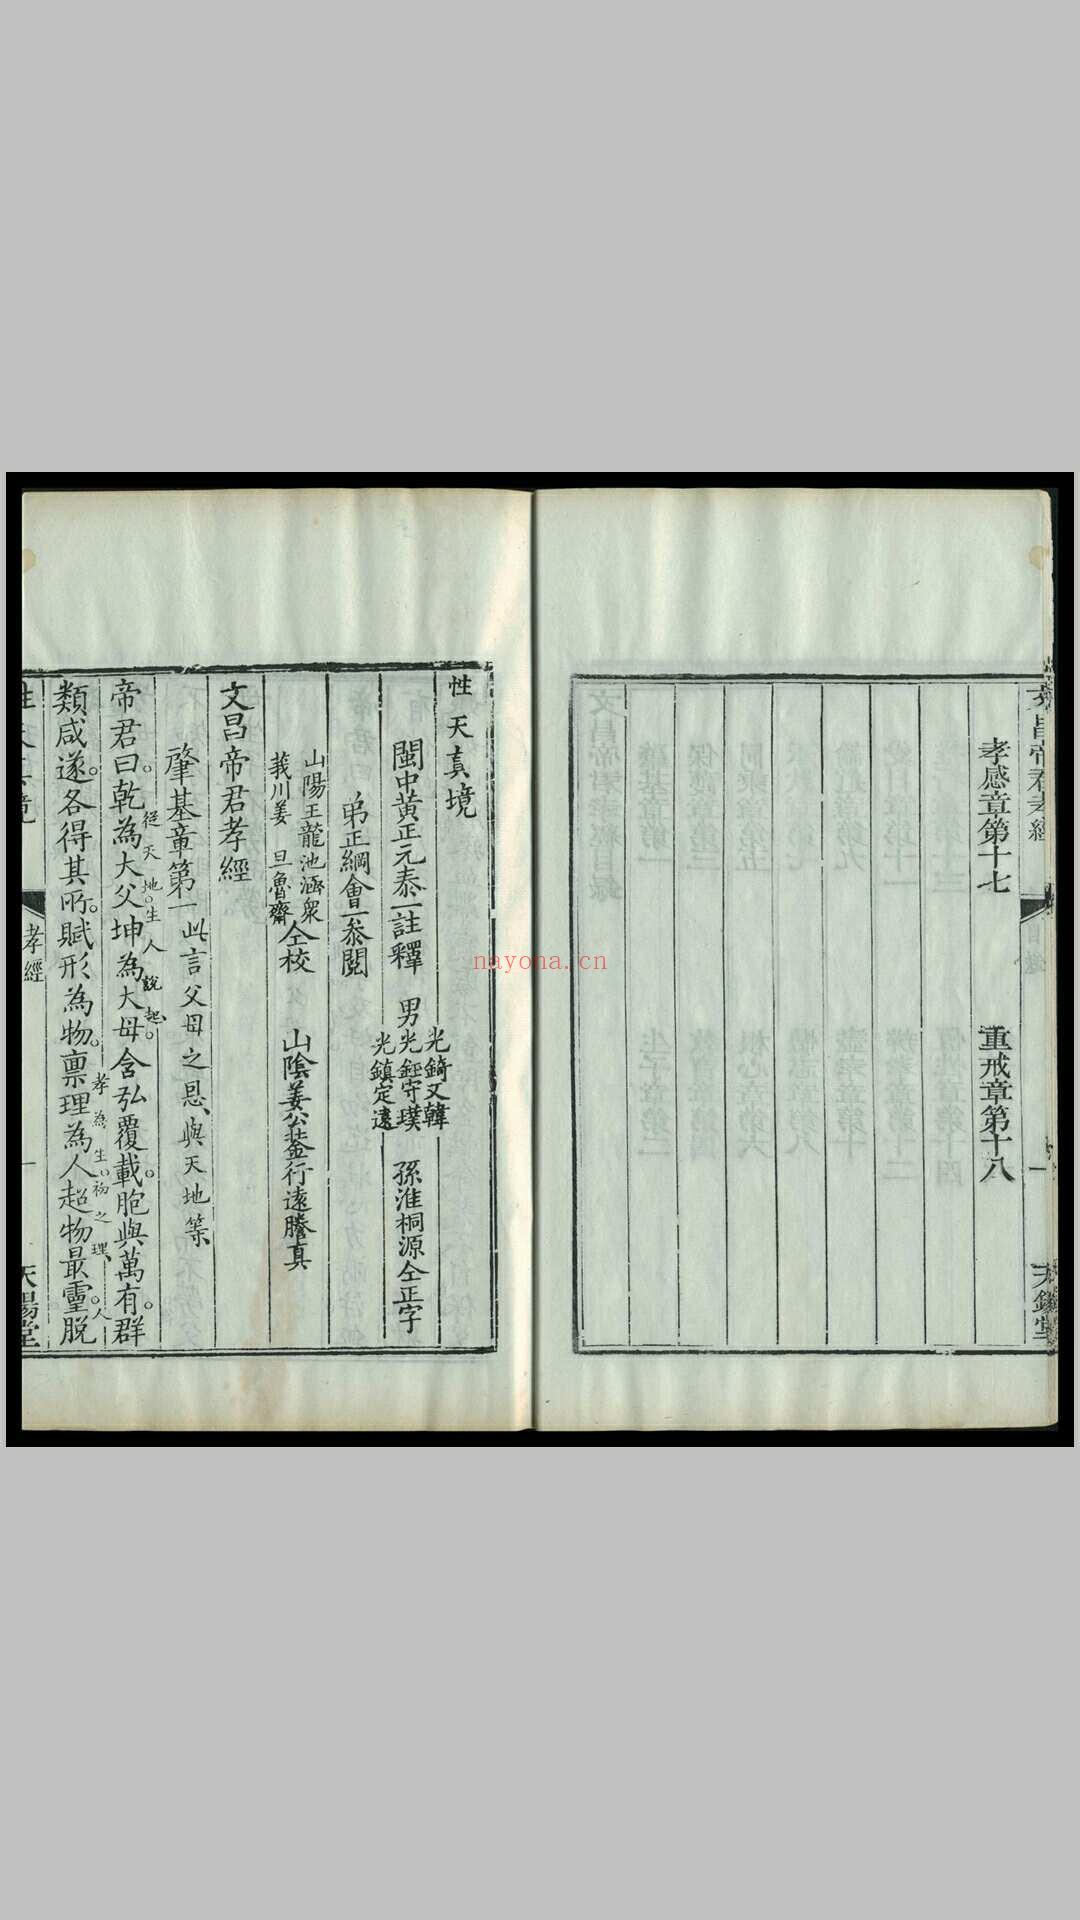 孝感章第十七
重戒章第十八
性天真境
閩中黃正元泰一註釋
男
光錡文韓
光鈺守璞
光鎮定遠
孫淮桐源仝正字
弟正綱會一叅閱
山陽王龍池涵衆
莪川姜 旦魯齋
仝校
山陰姜公
行遠謄真
文昌帝君孝經
肇基章第一
此言父母之恩、與天地等、
帝君曰。乾為大父坤為大母。含弘覆載。胞與萬有。群
從天地。生人說起。
類咸遂。各得其所。賦形為物。禀理為人。超物最靈。脫
孝為生。初之理、人
孝經
一
天陽堂
nayona.cn